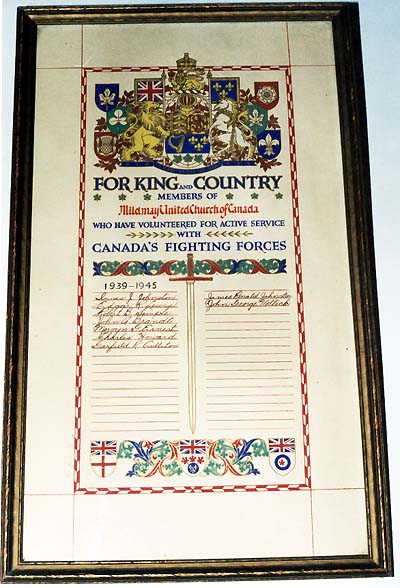 FOR KING AND COUNTRY
MEMBERS OF
Mildmay United Church of Canada
WHO HAVE VOLUNTEERED FOR ACTIVE SERVICE
WITH
CANADA'S FIGHTING FORCES
1939-1945
J. Johnston
Robert D. Sample
John A.
Mervyn G. Ernest
Charles Howard
Garfield R. Culleton
James Ronald Johnston
John George